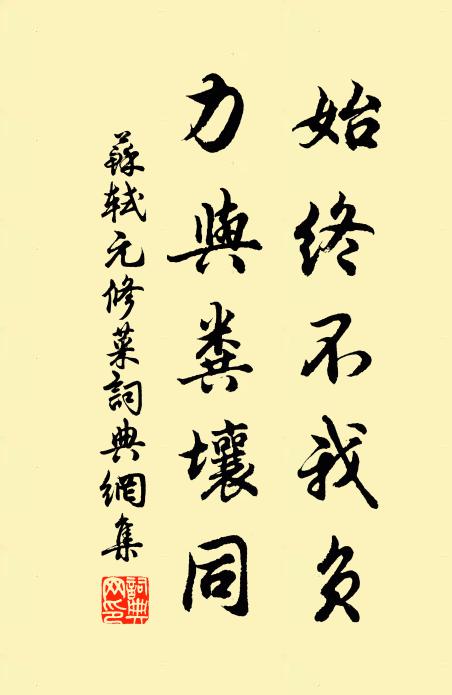 始終不我負
力與糞壤同
蘇軾元修菜詞典網集
詞典網印